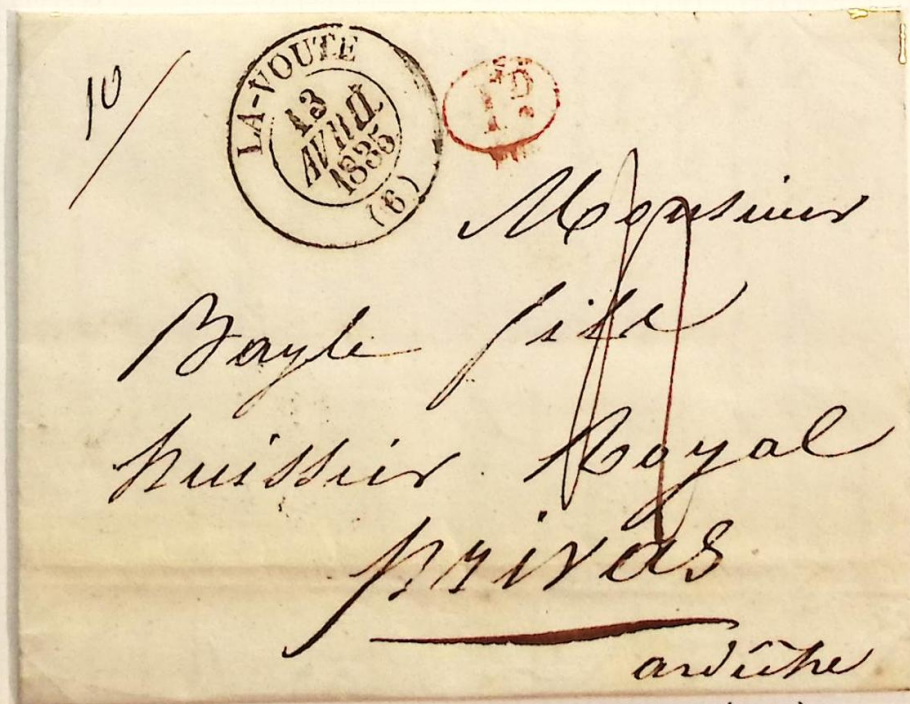 10
LA-VOUTE
13
AVRIL
1835
(6)
Monsieur
Bayle fils
huissier Royal
privas
ardêche